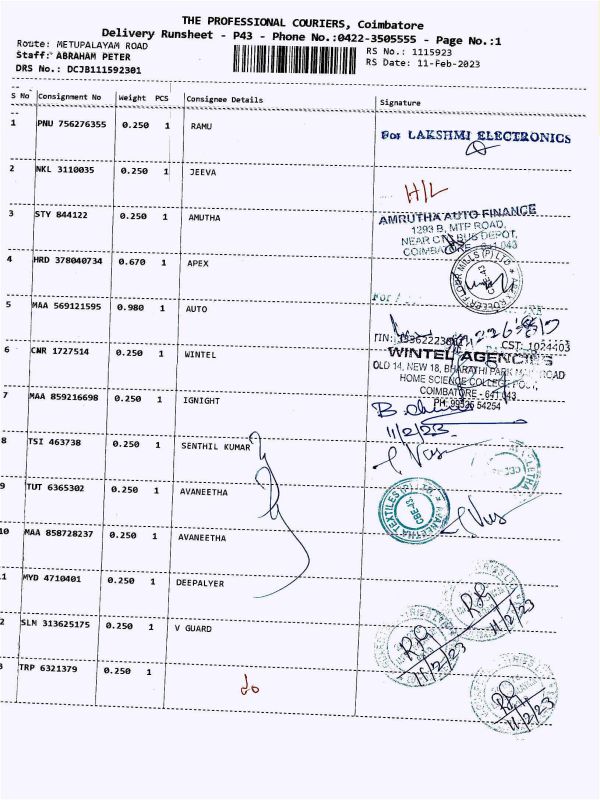 THE PROFESSIONAL COURIERS, Coimbatore
Delivery Runsheet - P43 - Phone No.:0422-3505555 - Page No.:1
Route: METUPALAYAM ROAD
RS No.: 1115923
Staff: ABRAHAM PETER
RS Date: 11-Feb-2023
DRS No.: DCJB111592301
S No Consignment No Weight PCS Consignee Details Signature
1 PNU 756276355 0.250 1 RAMU
For LAKSHMI ELECTRONICS
2 NKL 3110035 0.250 1 JEEVA
H/L
3 STY 844122 0.250 1 AMUTHA
AMRUTHA AUTO FINANCE
1293 B, MTP ROAD,
NEAR BUS DEPOT,
COIMBATORE - 641 043
4 HRD 378040734 0.670 1 APEX
5 MAA 569121595 0.980 1 AUTO
For
CST: 1024403
6 CNR 1727514 0.250 1 WINTEL
WINTEL AGENCIES
OLD 14, NEW 18, BHARATHI PARK ROAD
HOME SCIENCE COLLEGE
COIMBATORE - 641 043
54254
7 MAA 859216698 0.250 1 IGNIGHT
11/2/23
8 TSI 463738 0.250 1 SENTHIL KUMAR
9 TUT 6365302 0.250 1 AVANEETHA
AVANEETHA TEXTILES (P) LTD
CBE-43
10 MAA 858728237 0.250 1 AVANEETHA
1 MYD 4710401 0.250 1 DEEPALYER
11/2/23
2 SLN 313625175 0.250 1 V GUARD
11/2/23
3 TRP 6321379 0.250 1
do
11/2/23